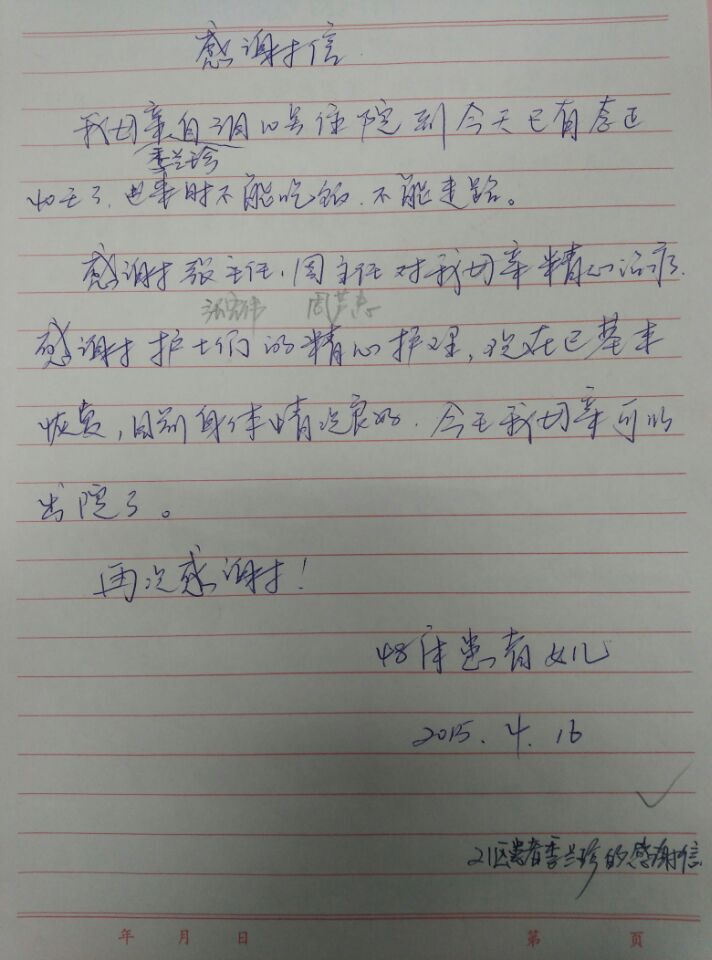 感谢信
我母亲自 住院到今天已有
季兰珍
40天了,进来时不能吃饭,不能走路。
感谢张主任、周主任对我母亲精心治疗,
感谢护士们的精心护理,现在已基本
恢复,目前身体情况良好,今天我母亲可以
出院了。
再次感谢!
48床患者女儿
2015.4.16
21区患者季兰珍的感谢信
年 月 日 第 页